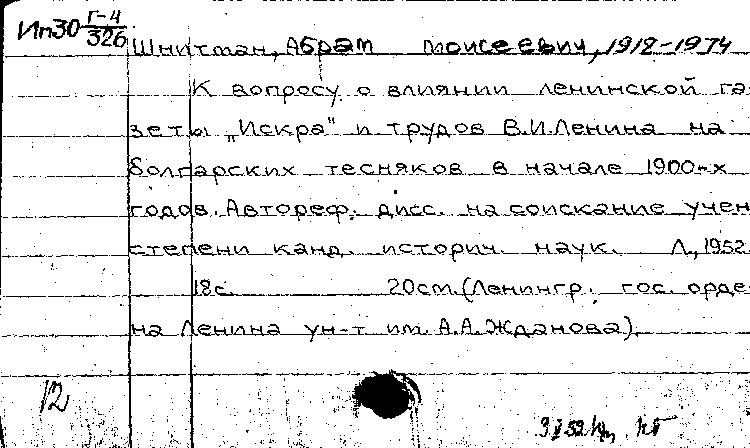 Ип30 Г-4/326
Шнитман, Абрам Моисеевич, 1912-1974
К вопросу о влиянии ленинской га-
зеты „Искра" и трудов В.И.Ленина на
болгарских тесняков в начале 1900-х
годов. Автореф. дисс. на соискание учен
степени канд. историч. наук. Л., 1952.
18с. 20см. (Ленингр. гос. орде-
на Ленина ун-т им. А.А.Жданова).
12